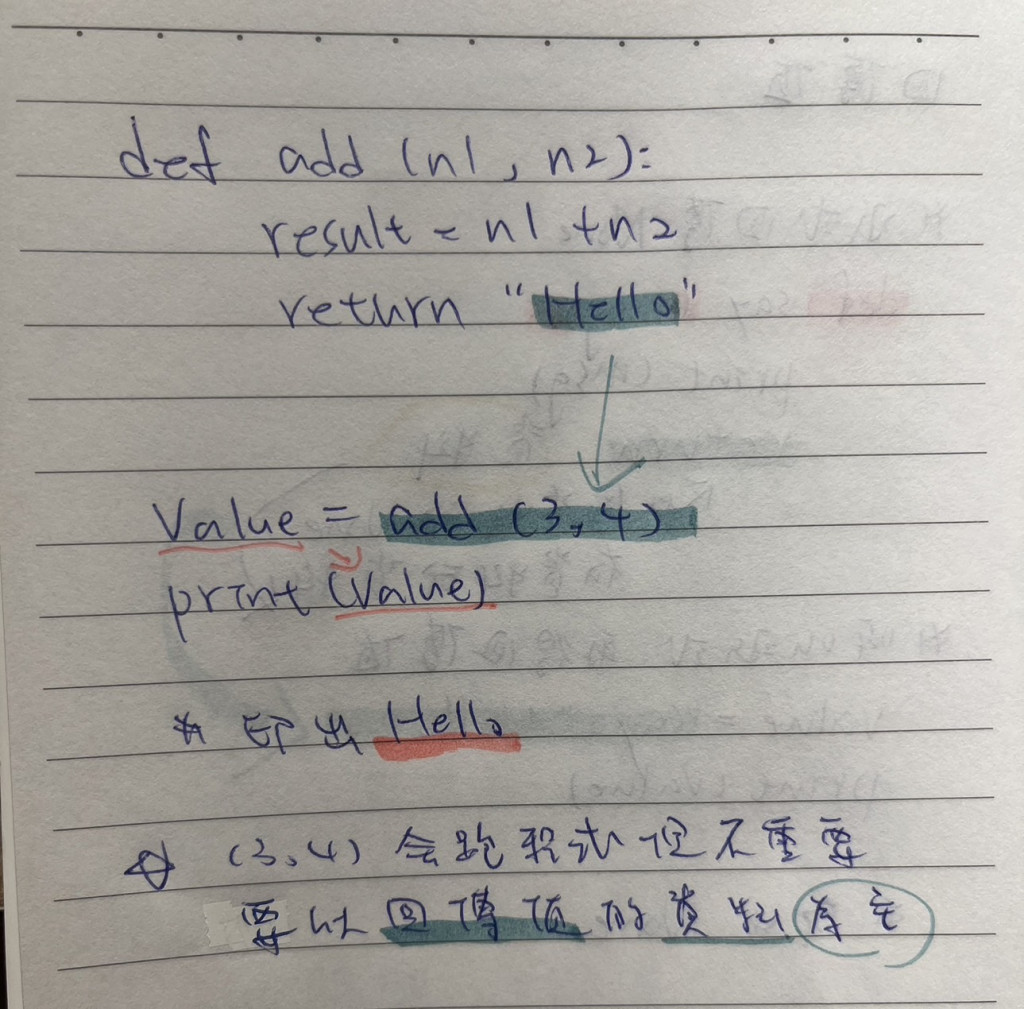 def add (n1, n2):
result = n1 + n2
return "Hello"
Value = add (3,4)
print (Value)
# 印出 Hello
☆ (3,4) 会跑程式但不重要
要以回傳值的資料為主